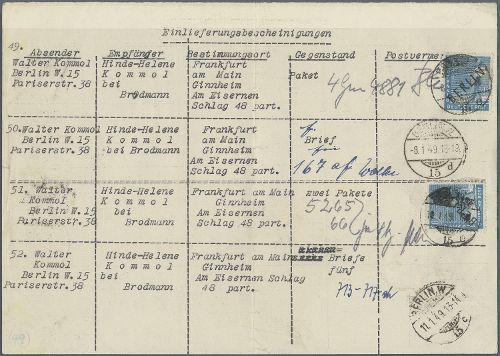 Einlieferungsbescheinigungen
49.
Absender Empfänger Bestimmungsort Gegenstand Postvermerk
Walter Kommol Hinde-Helene Frankfurt
Berlin W.15 K o m m o l am Main Paket
Pariserstr.38 bei Ginnheim
Brodmann Am Eisernen
Schlag 48 part.
BERLIN
50.Walter Kommol Hinde-Helene Frankfurt
Berlin W.15 K o m m o l am Main Brief
Pariserstr.38 bei Brodmann Ginnheim
Am Eisernen 167
Schlag 48 part.
BERLIN W
-8.1.49.13-14
15 d
51. Walter Hinde-Helene Frankfurt am Main zwei Pakete
Kommol K o m m o l Ginnheim 5265
Berlin W.15 bei Am Eisernen 66
Pariserstr.38 Brodmann Schlag 48 part.
15 d
52. Walter Hinde-Helene Frankfurt am Main Briefe
Kommol K o m m o l Ginnheim fünf
Berlin W.15 bei Am Eisernen Schlag
Pariserstr.38 Brodmann 48 part. 713-717
BERLIN W
11.1.49.13-14
15 c